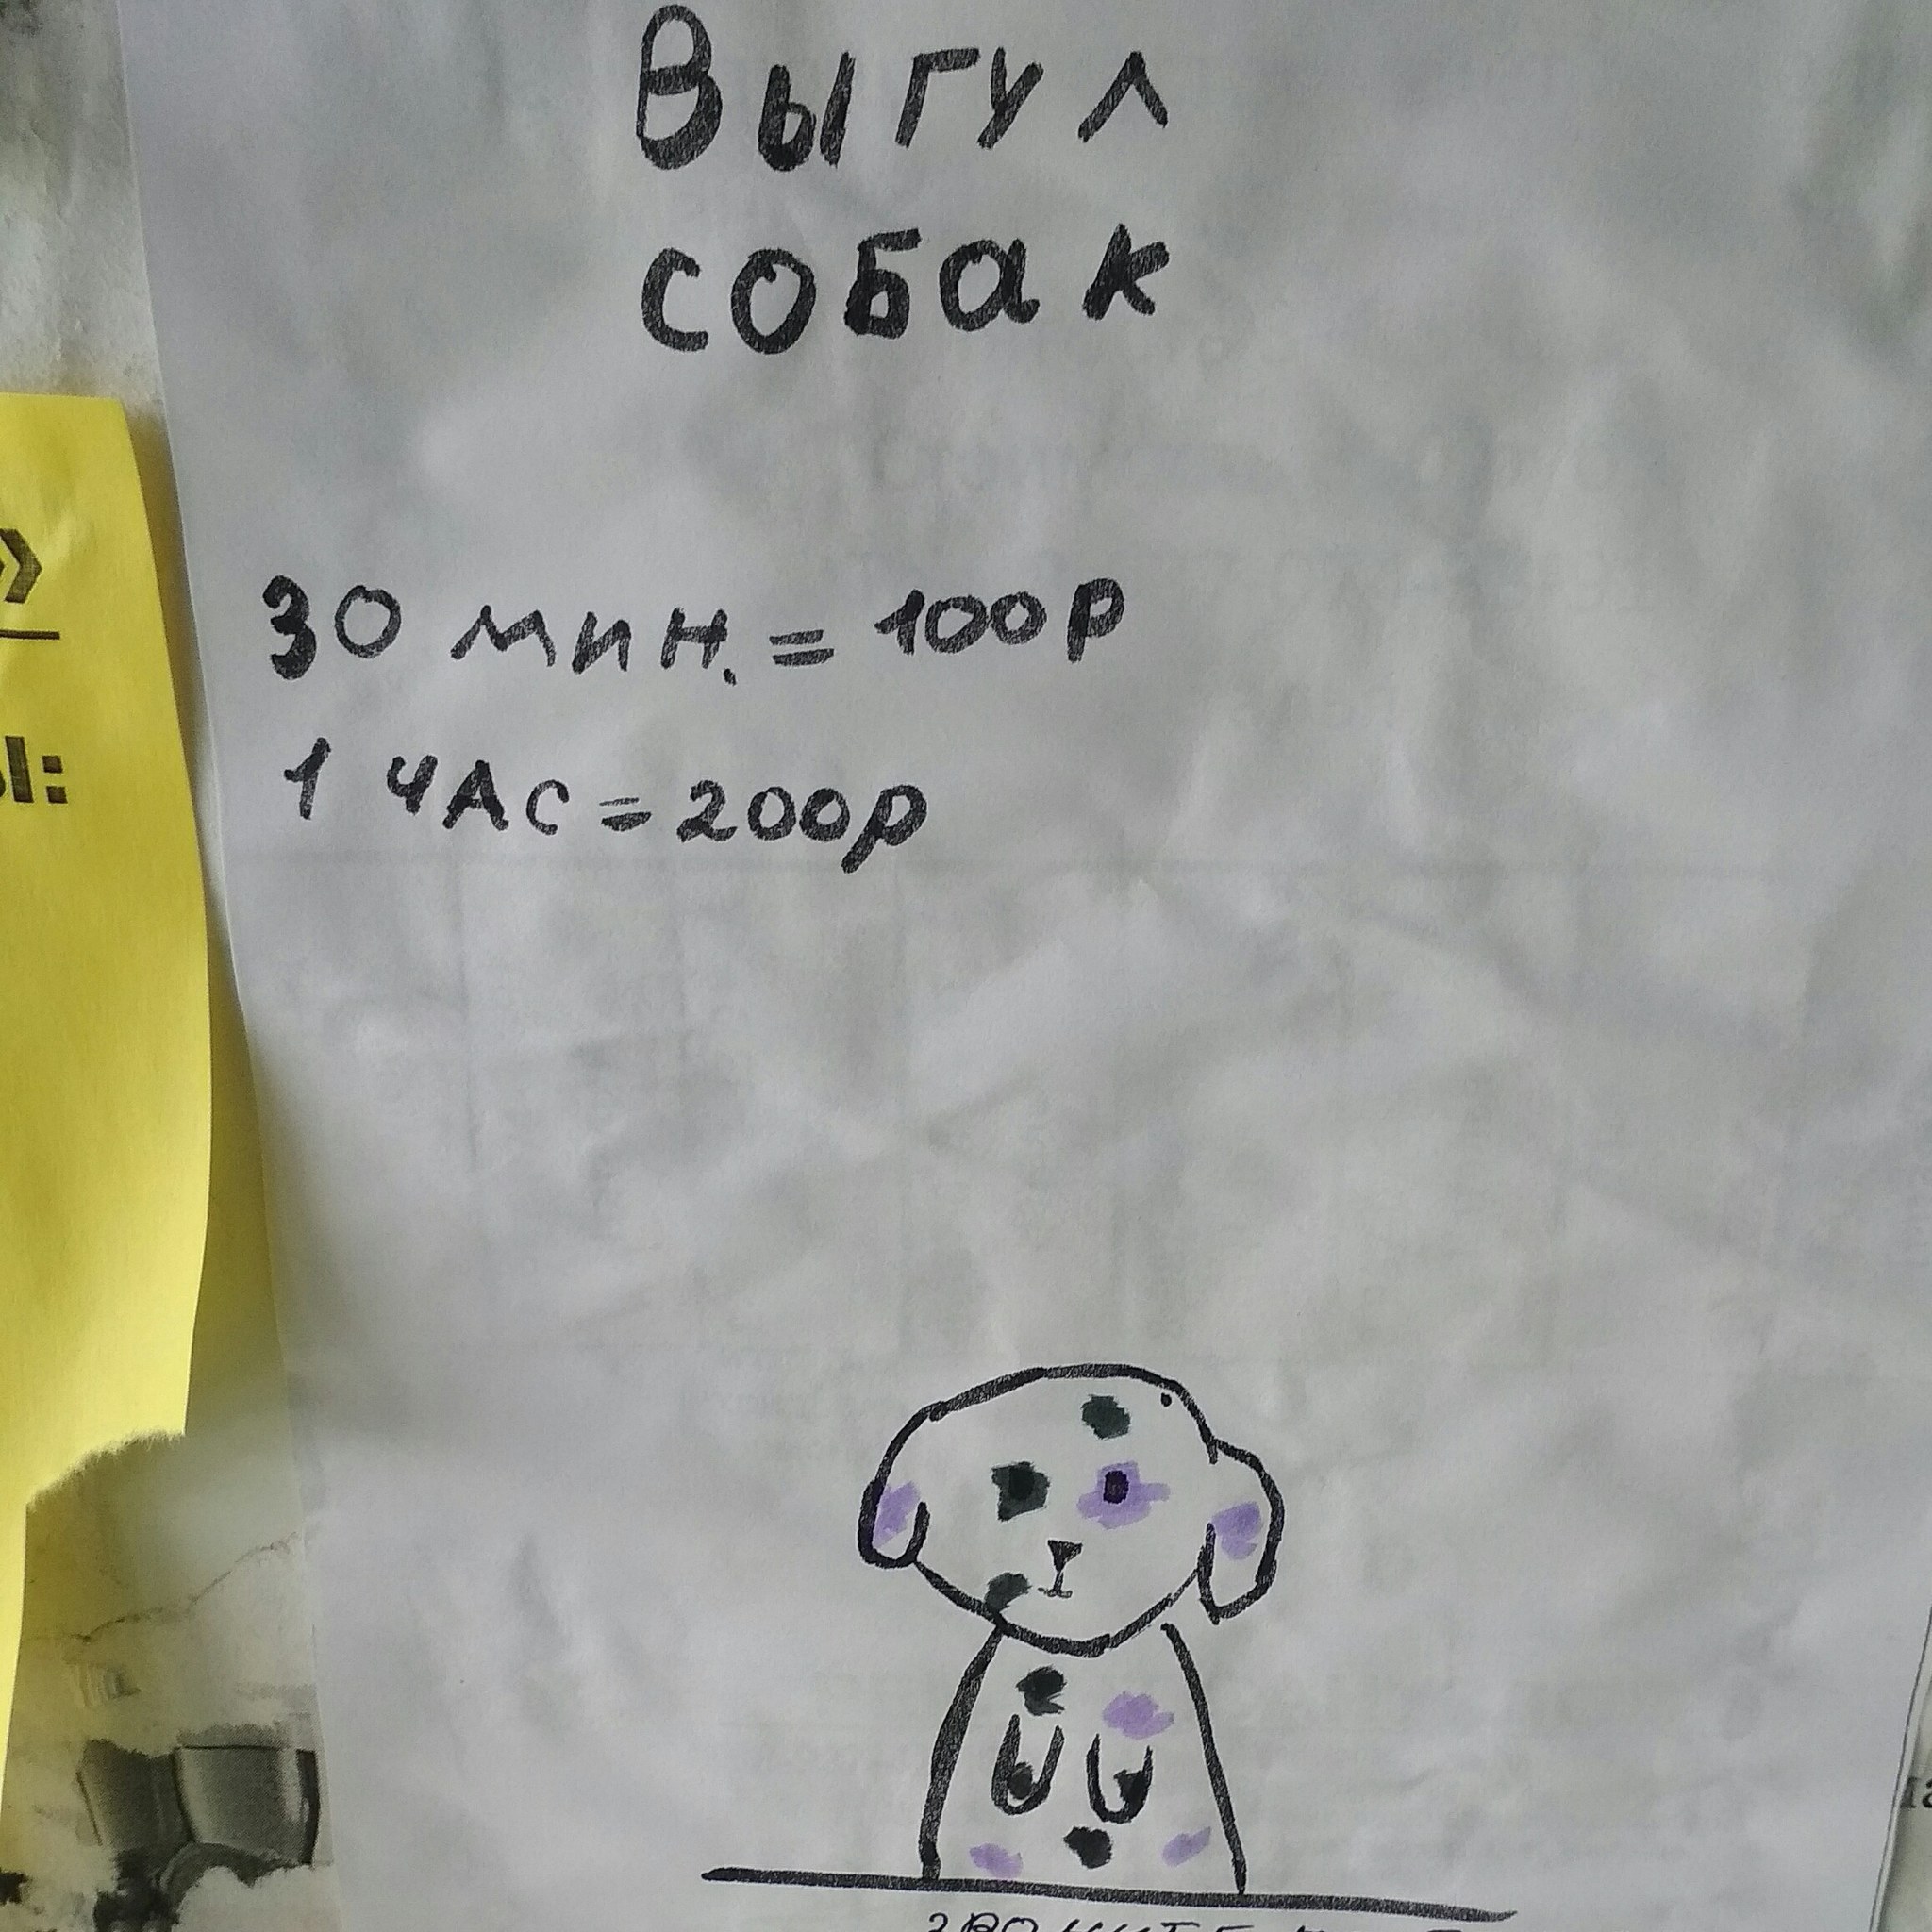 Выгул
собак
30 мин. = 100р
1 ЧАС = 200р
»
ы: